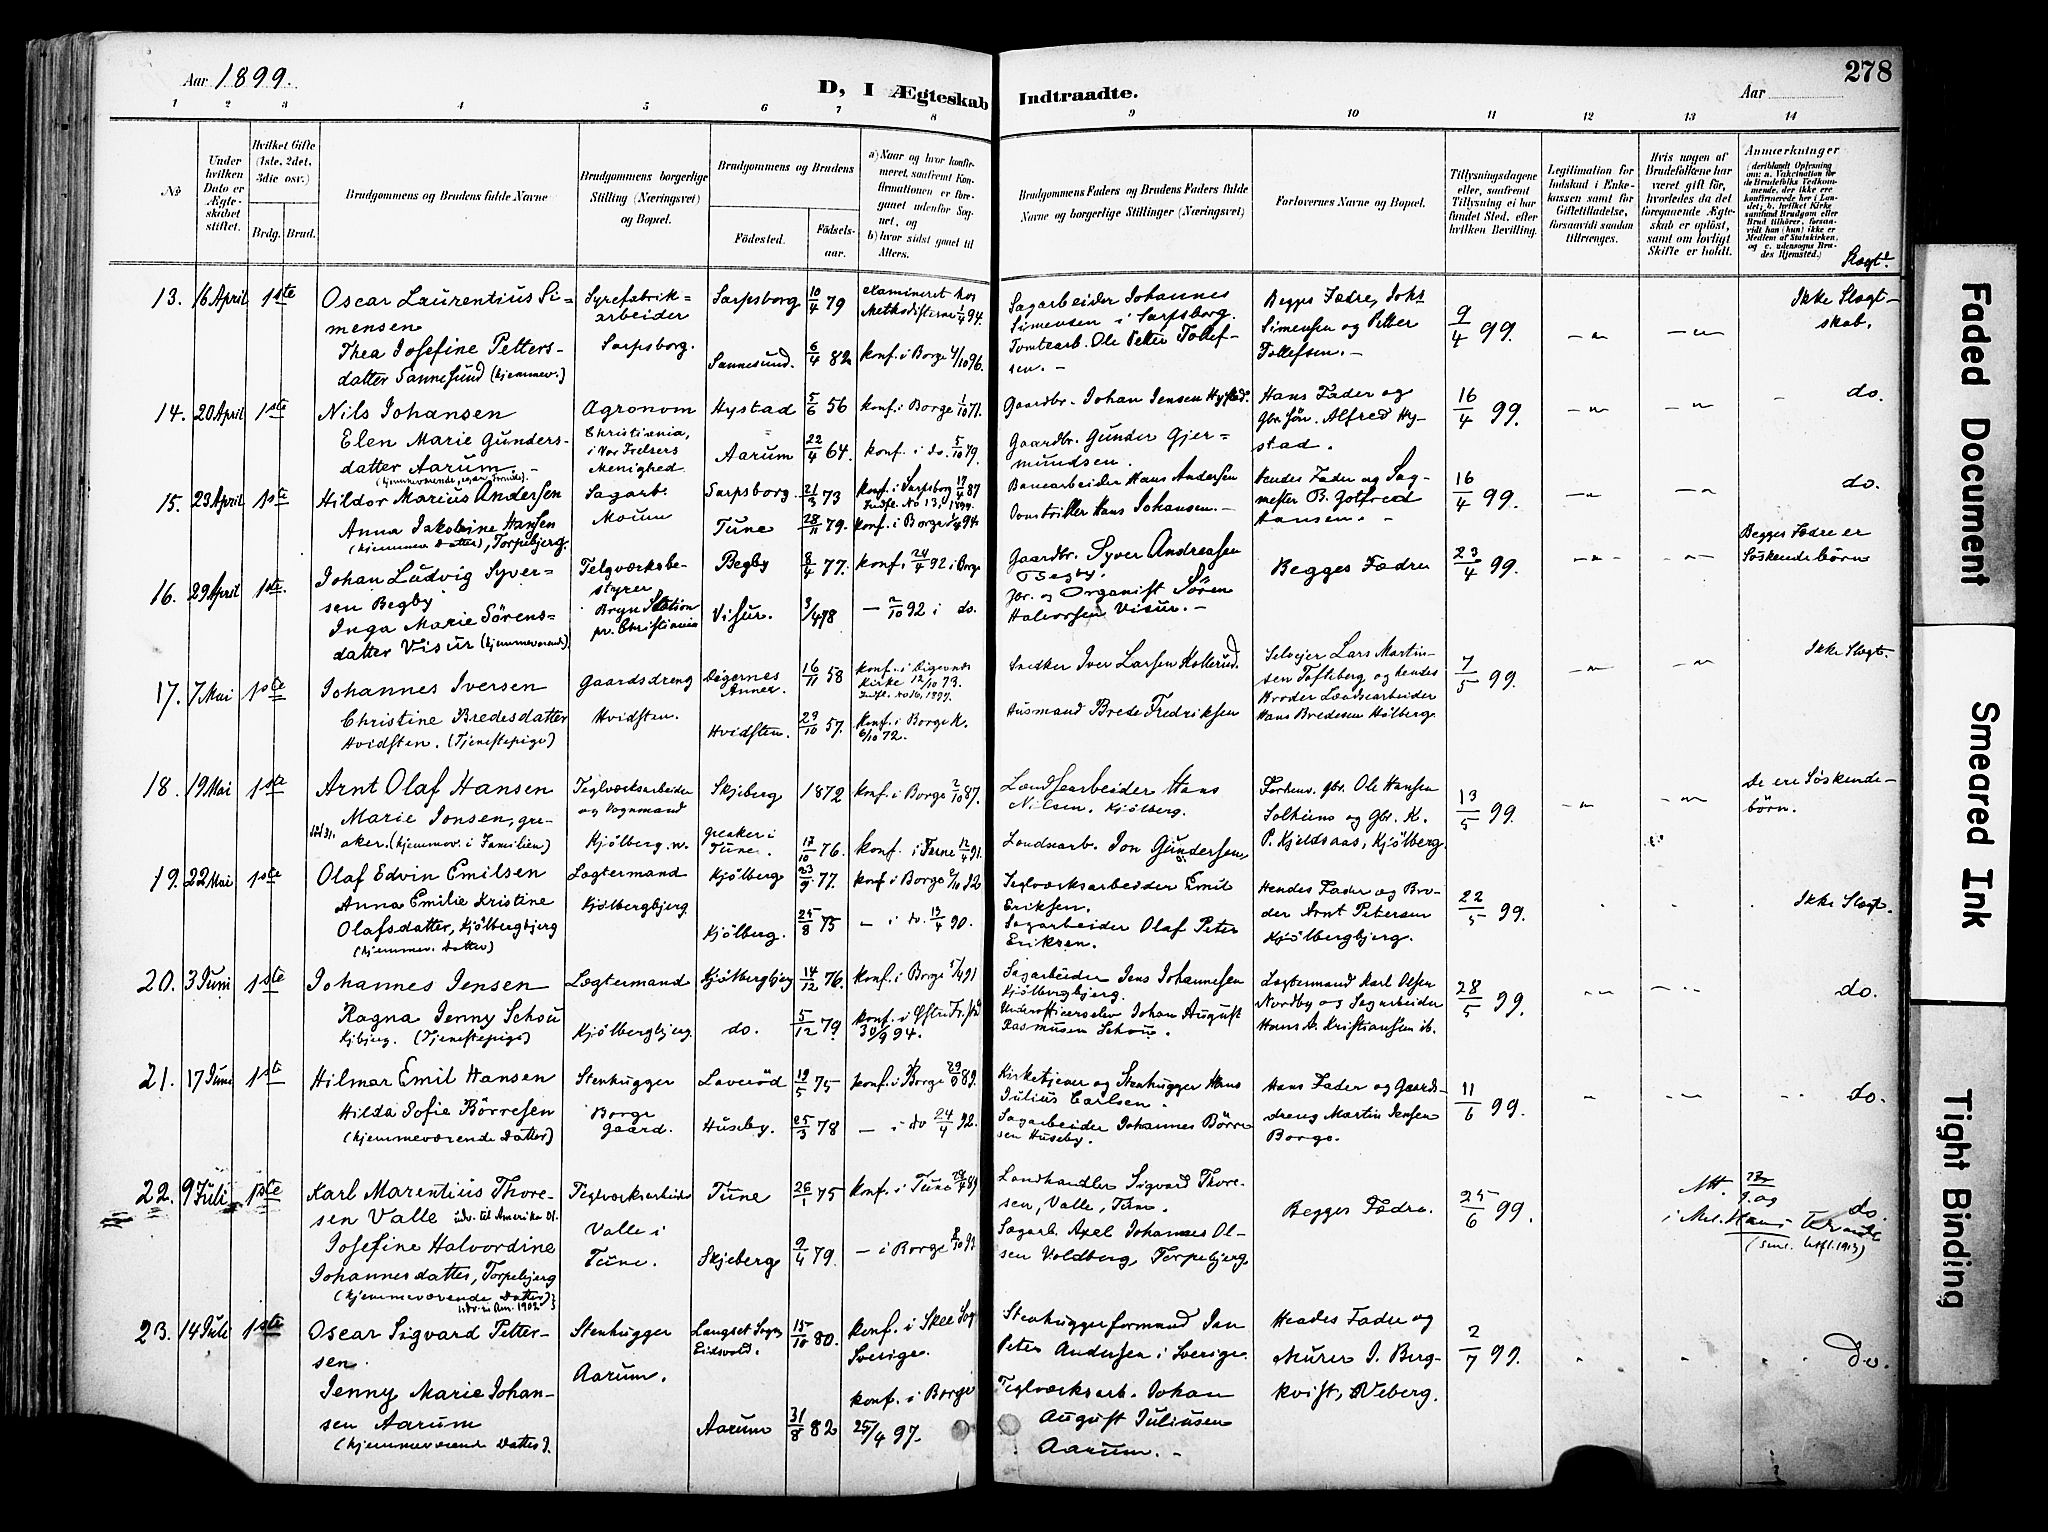 Aar 1899.
D, I Ægteskab Indtraadte.
Aar
278
1 2 3 4 5 6 7 8 9 10 11 12 13 14
No
Under hvilken Dato er Ægteskabet stiftet.
Hvilket Gifte (1ste, 2det, 3die osv.)
Brdg. Brud.
Brudgommens og Brudens fulde Navne
Brudgommens borgerlige Stilling (Næringsvei) og Bopæl.
Brudgommens og Brudens
Fødested.
Fødselsaar.
a) Naar og hvor konfirmeret, samt om Konfirmationen er foregaaet udenfor Sognet, og
b) hvor sidst gaaet til Alters.
Brudgommens Faders og Brudens Faders fulde Navne og borgerlige Stillinger (Næringsvei)
Forlovernes Navne og Bopæl.
Tillysningsdagene eller, saafremt Tillysning ei har fundet Sted, efter hvilken Bevilling.
Legitimation for Indskud i Enkekassen samt for Giftetilladelse, forsaavidt saadan tiltrænges.
Hvis nogen af Brudefolkene har været gift før, hvorledes da det foregaaende Ægteskab er opløst, samt om lovligt Skifte er holdt.
Anmærkninger
Slægt.
13. 16 April 1ste
Oscar Laurentius Simensen
Syrefabrikarbeider
Sarpsborg.
Sarpsborg 10/4 79
examineret hos Methodisterne 1/4 94.
Sagarbeider Johannes Simensen i Sarpsborg.
Begges Fædre, Johs Simensen og Petter Tollefsen. -
9/4 99.
Ikke Slægtskab.
Thea Josefine Pettersdatter Sannesund (hjemmev.)
Sannesund. 6/4 82
konf. i Borge 4/10 96.
Tomtearb. Ole Petter Tollefsen. -
14. 20 April 1ste
Nils Johansen
Agronom
Christiania, i Vor Frelsers Menighed.
Hystad 5/6 56
konf. i Borge 1/10 71.
Gaardbr. Johan Jensen Hystad.
Hans Fader og Gbr. søn. Alfred Hystad.
16/4 99.
do.
Elen Marie Gundersdatter Aarum.
Aarum 22/4 64.
konf. i do. 5/10 79.
Gaardbr. Gunder Gjermundsen.
15. 23 April 1ste
Hildor Marius Andersen
Sagarb.
Moum
Sarpsborg. 21/3 73
konf. i Sarpsborg 17/4 87
Indfl. No 13, 1899.
Banearbeider Hans Andersen
Hendes Fader og Sagmester B. Gotfred Hansen. -
16/4 99.
do.
Anna Jakobine Hansen
(hjemmev. Datter), Torpebjerg.
Tune 28/11 79.
konf. i Borge 94.
Hans Johansen. -
16. 29 April 1ste
Johan Ludvig Syversen Begby
Telgværksbestyrer
Bryn Station pr. Christiania
Begby 8/4 77.
konf. 24/4 92 i Borge
Gaardbr. Syver Andreasen Begby.
Begges Fædre
23/4 99.
Begges Fædre er Søskendebørn
Inga Marie Sörensdatter Visur (hjemmeværende)
Visur. 3/4 78
- 2/10 92 i do.
Gbr. og Organist Sören Halvorsen Visur. -
17. 7 Mai 1ste
Johannes Iversen
Gaardsdreng
Hvidsten.
Digernes Anner. 16/11 58
konf. i Digernes Kirke 12/10 73.
Indfl. No 16, 1897.
Snedker Iver Larsen Kolterud.
Selveier Lars Martinsen Tofteberg og hendes Broder Landsearbeider Hans Bredesen Hölberg.
7/5 99.
Ikke Slægt.
Christine Bredesdatter Hvidsten. (Tjenestepige)
Hvidsten. 29/10 57.
konf. i Borge K. 6/10 72.
Husmand Brede Fredriksen
18. 19 Mai 1ste
Arnt Olaf Hansen
Teglværksarbeider og Vognmand
Kjölberg. n.
Skjeberg 1872
konf. i Borge 2/10 87.
Landsearbeider Hans Nilsen, Kjölberg.
Forhenv. Gbr. Ole Hansen Solhuus og Gbr. K. P. Kjeldsaas, Kjölberg.
13/5 99.
De ere Söskendebörn.
Marie Jonsen, greaker. (hjemmev. i Familien)
Greaker i Tune. 17/10 76.
konf. i Tune 12/4 91.
Landsearb. Jon Gundersen
19. 22 Mai 1ste
Olaf Edvin Emilsen
Lægtermand
Kjölbergbjerg
Kjölberg 23/9 77.
konf i Borge 2/10 92
Teglværksarbeider Emil Eriksen.
Hendes Fader og Broder Arnt Petersen Kjölbergbjerg.
22/5 99.
Ikke Slægt.
Anna Emilie Kristine Olafsdatter, Kjölbergbjerg
(hjemmev. Datter)
Kjölberg. 25/8 75
- i do. 13/4 90.
Sagarbeider Olaf Peter Eriksen.
20. 3 Juni 1ste
Johannes Jensen
Lægtermand
Kjölbergbjerg.
Kjölbergbjerg 14/12 76.
konf. i Borge 5/4 91
Sagarbeider Jens Johannesen Kjölbergbjerg.
Lægtermand Karl Olsen Nordby og Sagarbeider Hans A. Kristiansen ib.
28/5 99.
do.
Ragna Jenny Schou
Kjbjerg. (Tjenestepige)
do. 5/12 79.
konf. i Östre Fr.stad 30/9 94.
Underofficerselev Johan August Rasmussen Schou.
21. 17 Juni 1ste
Hilmar Emil Hansen
Stenhugger
Borge gaard.
Laveröd 19/5 75
konf. i Borge 29/9 89.
Kirketjener og Stenhugger Hans Julius Carlsen.
Hans Fader og Gaardsdreng Martin Jensen Borge.
11/6 99.
do.
Hilda Sofie Börresen
(hjemmeværende Datter)
Huseby. 25/3 78
- i do 24/4 92.
Sagarbeider Johannes Börresen Huseby.
22. 9 Juli 1ste
Karl Marentius Thoresen Valle
Teglværksarbeider
Valle i Tune.
Tune 26/1 75
konf. i Tune
Landhandler Sigvard Thoresen, Valle, Tune.
Begges Fædre.
25/6 99.
do.
(senl. hitfl. 1913)
Josefine Halvordine Johannesdatter, Torpebjerg
(hjemmeværende Datter)
udv. til Am. 1902
Skjeberg 9/4 79.
- i Borge
Sagarb. Axel Johannes Olsen Voldberg, Torpebjerg
23. 14 Juli 1ste
Oscar Sigvard Pettersen.
Stenhugger
Aarum.
Langset Sogn Eidsvold. 15/10 80.
konf. i Skee Sogn Sverige.
Stenhuggerformand Jan Peter Andersen i Sverige.
Hendes Fader og Murer J. Bergkvist, Veberg.
2/7 99.
Do.
Jenny Marie Johansen Aarum
(hjemmeværende Datter).
Aarum 31/8 82
konf. i Borge 25/4 97.
Teglværksarb. Johan August Juliusen Aarum. -
Faded Document
Smeared Ink
Tight Binding